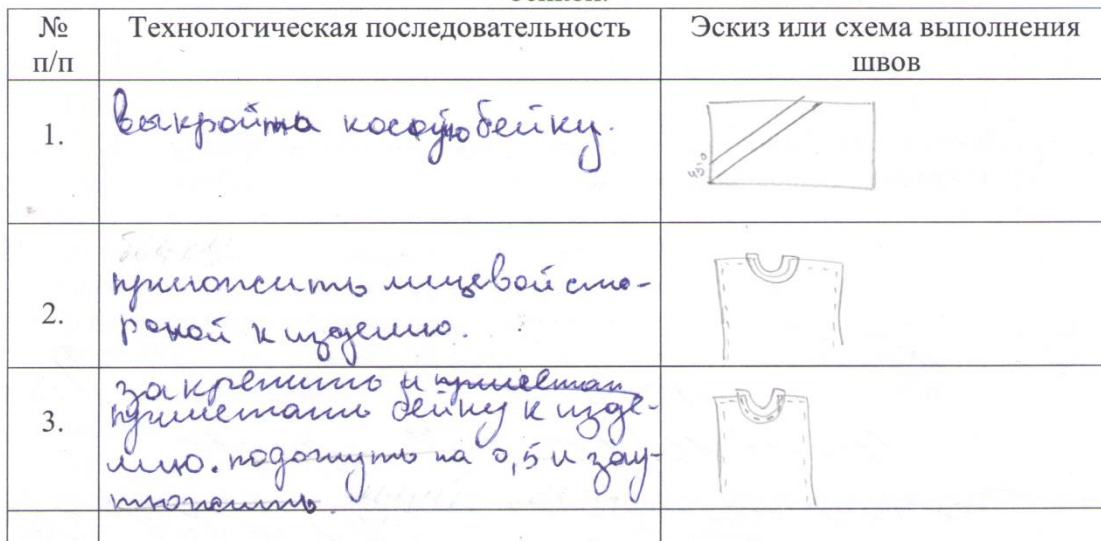 бейкой.
№ п/п
Технологическая последовательность
Эскиз или схема выполнения швов
1.
выкройка косую бейку.
3,0
2.
приложить лицевой сто-
роной к изделию.
3.
закрепить и приметать
приметать бейку к изде-
лию. подогнуть на 0,5 и зау-
тюжить.